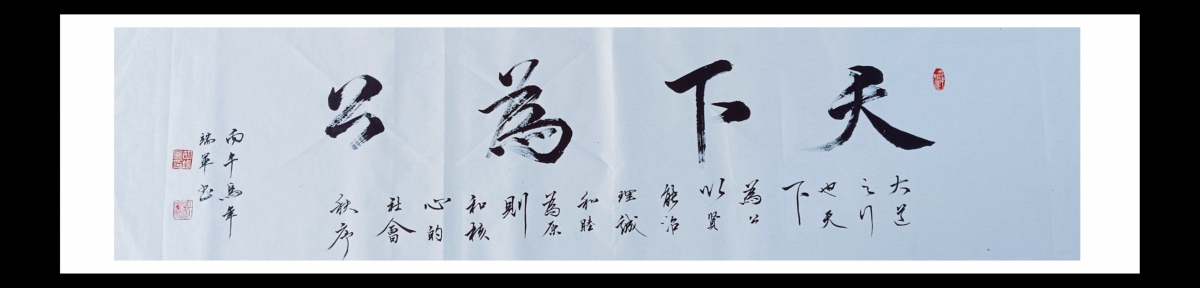 天下為公
大道
之行
也天
下
為公
以賢
能治
理誠
和睦
為原
則
和核
心的
社會
秩序
丙午馬年
瑞軍書